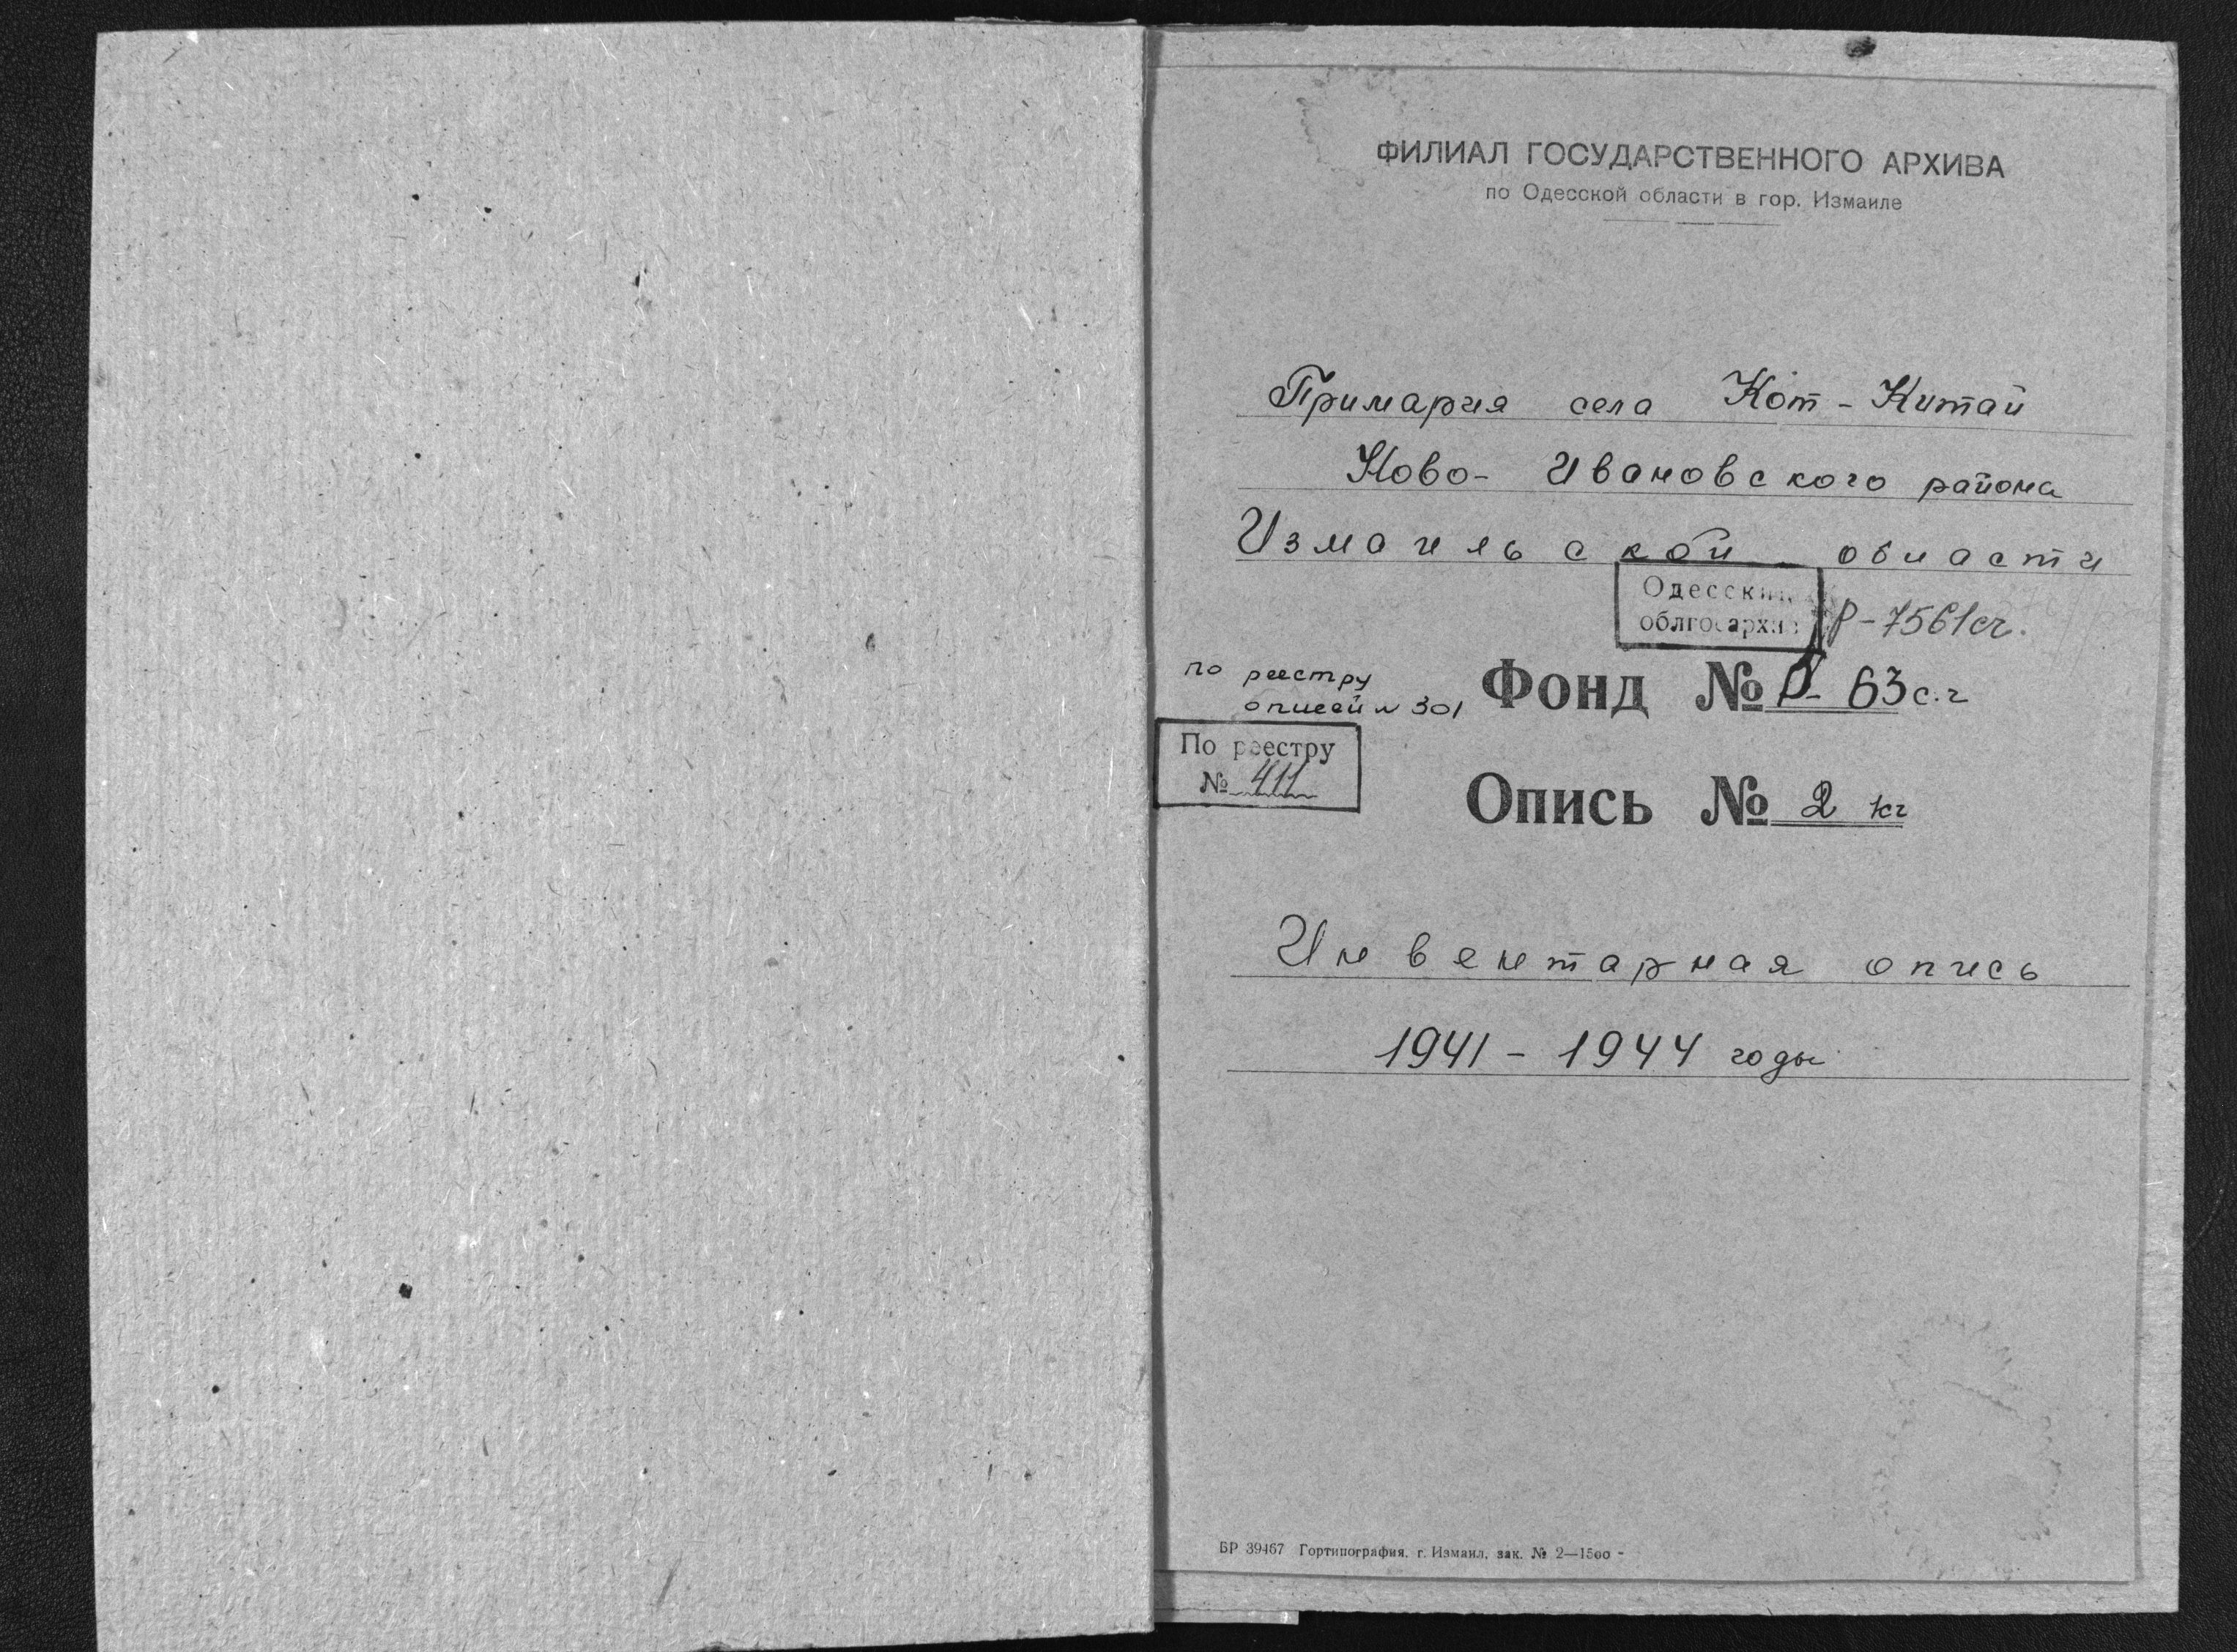 ФИЛИАЛ ГОСУДАРСТВЕННОГО АРХИВА
по Одесской области в гор. Измаиле
Примария села Кот-Китай
Ново-Ивановского района
Измаильской области
Одесский
облгосархив
Р-7561сч.
по реестру
описей № 301
Фонд № Р-63с.ч
По реестру
№ 411
Опись № 2 кг
Инвентарная опись
1941-1944 годы
БР 39467 Гортипография. г. Измаил, зак. № 2—1500 -